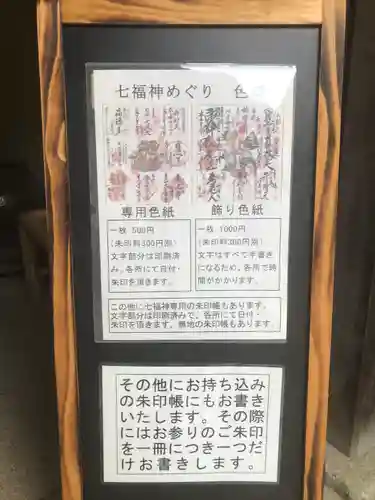 七福神めぐり 色紙
専用色紙
飾り色紙
一枚 500円
(朱印料300円別)
文字部分は印刷済
み。各所にて日付・
朱印を頂きます。
一枚 1000円
(朱印料300円別)
文字はすべて手書き
になるため、各所で時
間がかかります。
この他に七福神専用の朱印帳もあります。
文字部分は印刷済みで、各所にて日付・
朱印を頂きます。無地の朱印帳もあります。
その他にお持ち込み
の朱印帳にもお書き
いたします。その際
にはお参りのご朱印
を一冊につき一つだ
けお書きします。